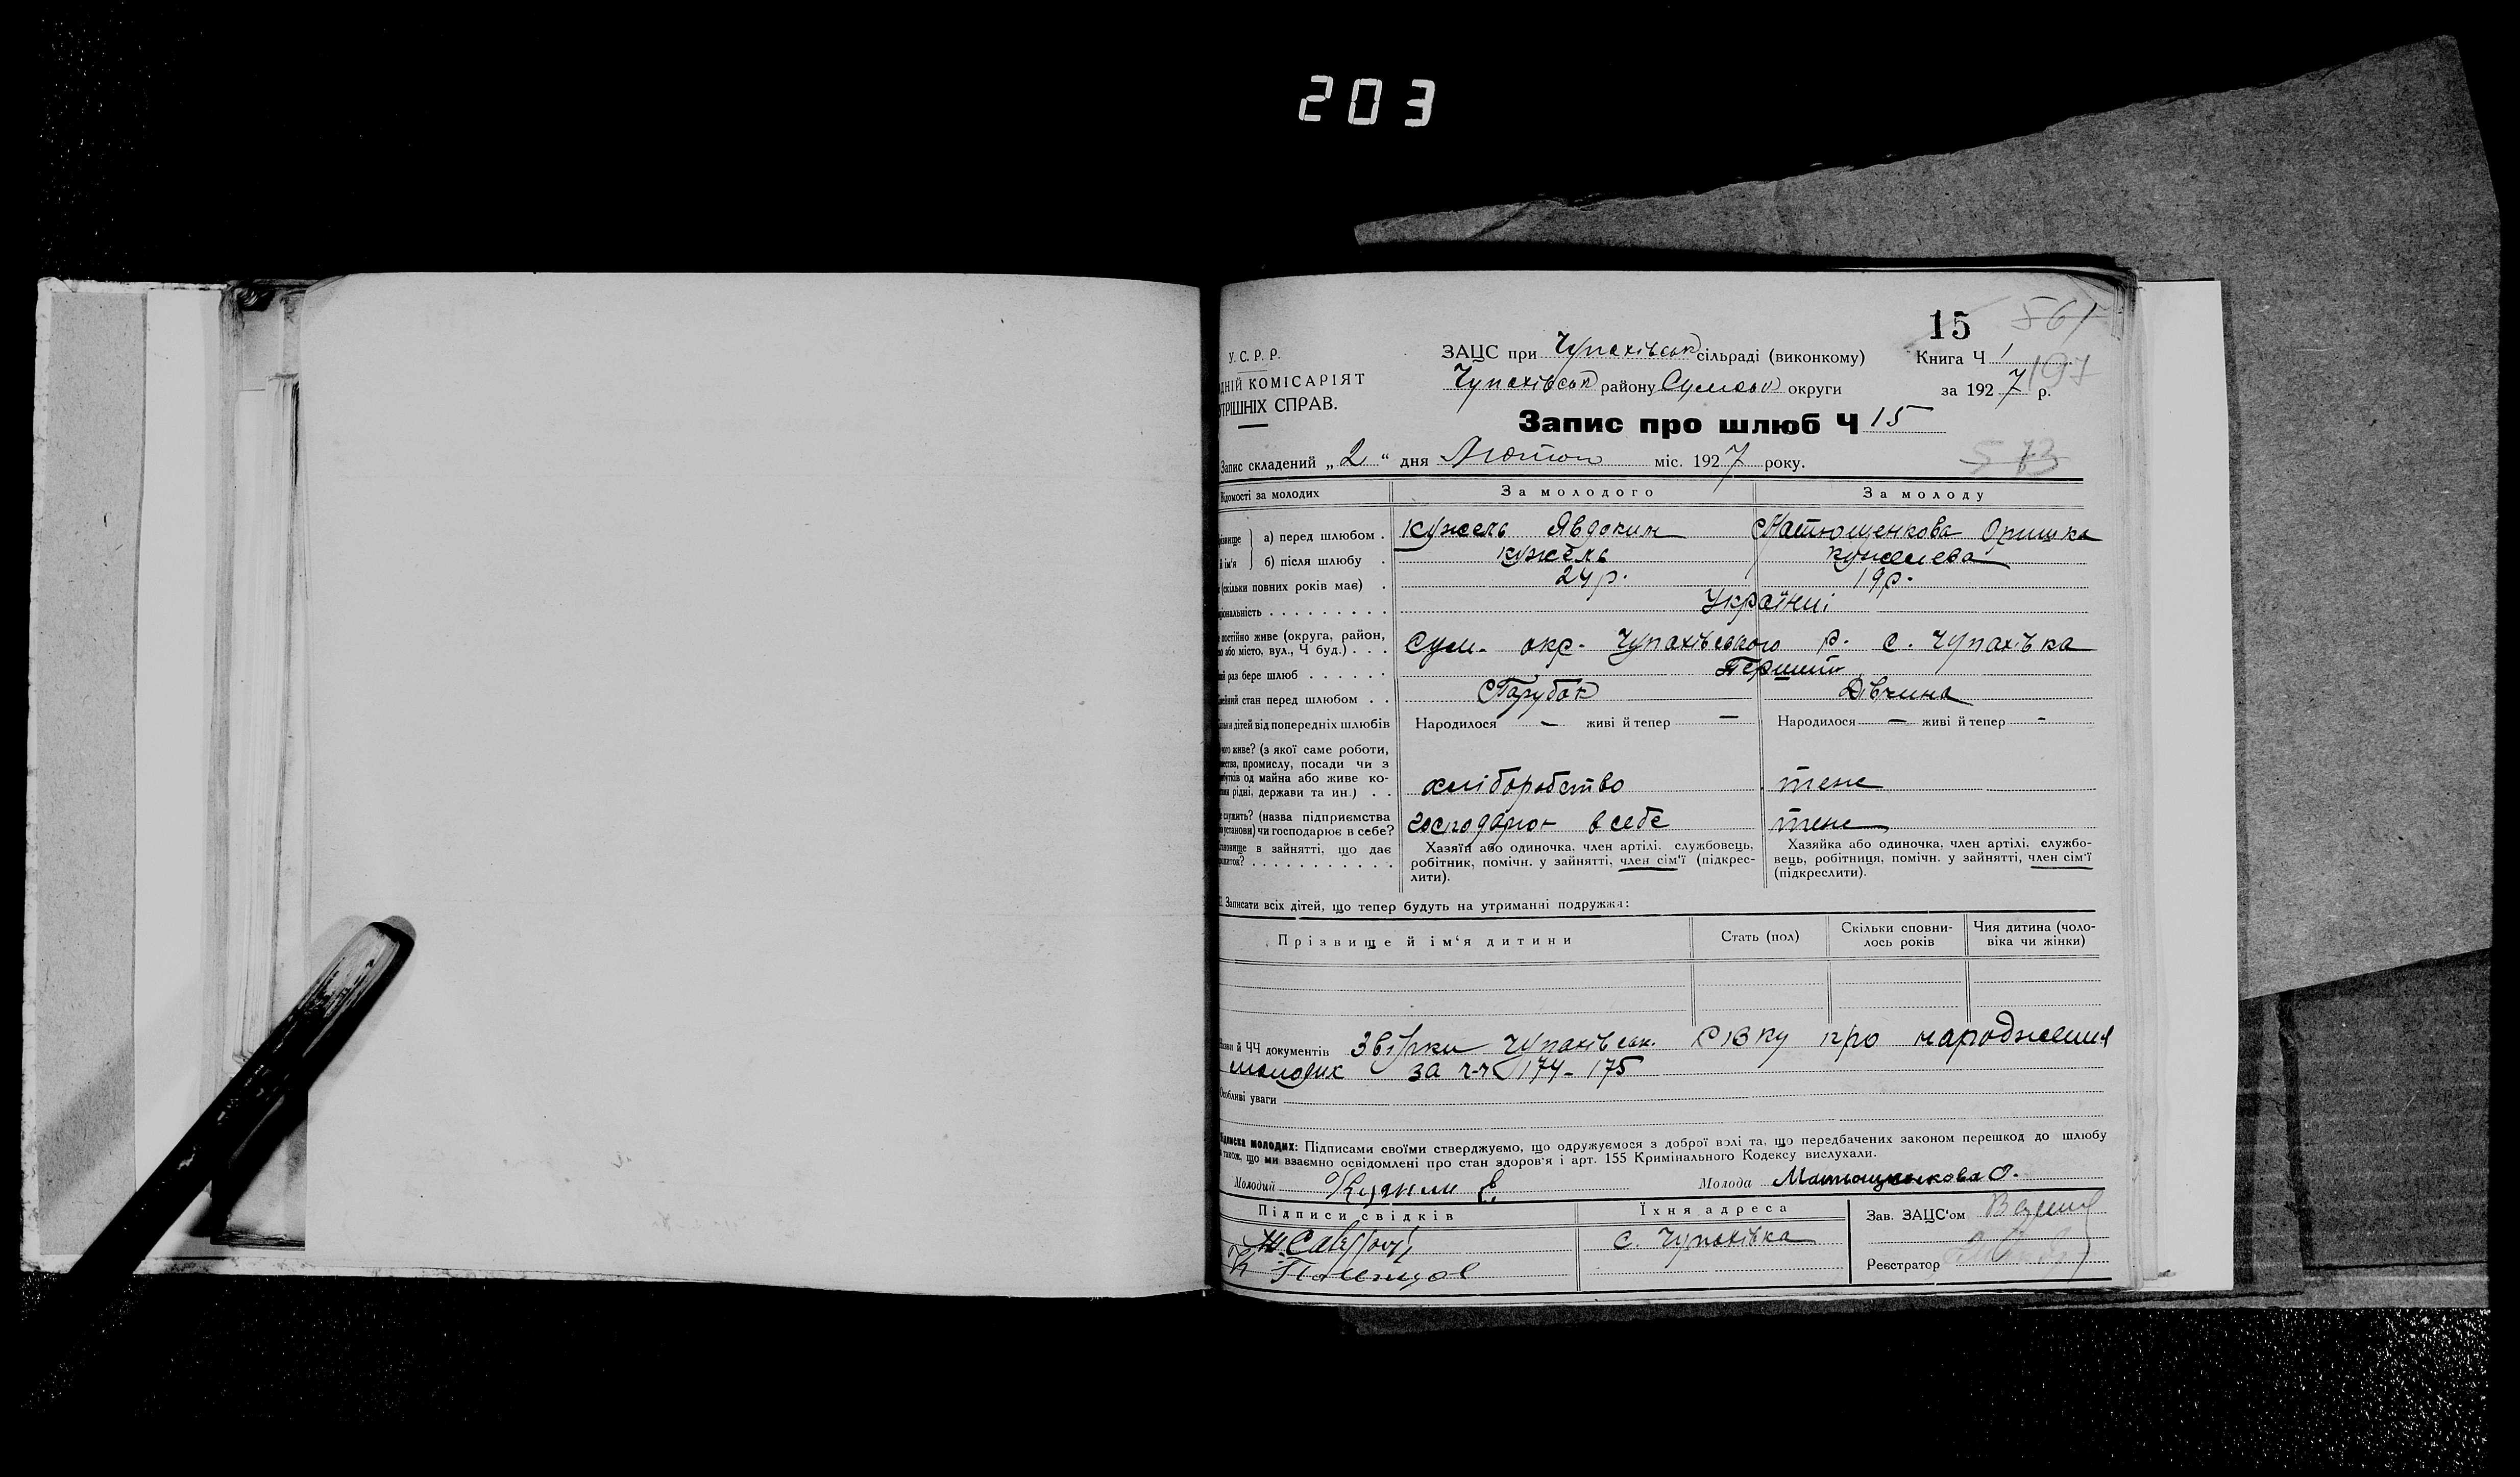 203
15 561
У. С. Р. Р.
ЗАЦС при Чупахівськ сільраді (виконкому) Книга Ч 1
ДНІЙ КОМІСАРІЯТ
Чупахівськ району Сумськ округи за 1927 р. 197
УТРІШНІХ СПРАВ.
Запис про шлюб Ч 15
Запис складений „ 2 “ дня Лютого міс. 1927 року. 573
Відомості за молодих За молодого За молоду
а) перед шлюбом . Кужель Явдоким Матющенкова Оришка
й ім'я б) після шлюбу . кужель кужелева
(скільки повних років має) . 24 р. 19 р.
ціональність . . . . . . . . . Українці
постійно живе (округа, район,
або місто, вул., Ч буд.) . . . Сум. окр. Чупахівського р. с. Чупахівка
раз бере шлюб . . . . . . Перший
стан перед шлюбом . . Парубок Дівчина
дітей від попередніх шлюбів Народилося — живі й тепер — Народилося — живі й тепер -
чого живе? (з якої саме роботи,
промислу, посади чи з
од майна або живе ко-
рідні, держави та ин.) . . хліборобство теже
служить? (назва підприємства
установи) чи господарює в себе? господарює в себе теже
в зайнятті, що дає Хазяїн або одиночка, член артілі, службовець, Хазяйка або одиночка, член артілі, службо-
. . . . . . . . . . . робітник, помічн. у зайнятті, член сім'ї (підкрес- вець, робітниця, помічн. у зайнятті, член сім'ї
лити). (підкреслити).
Записати всіх дітей, що тепер будуть на утриманні подружжя:
Прізвище й ім'я дитини Стать (пол) Скільки сповни- Чия дитина (чоло-
лось років віка чи жінки)
й ЧЧ документів Звірки Чупахівськ. СВКу про народження
молодих за ч-ч 174 - 175
Особливі уваги
Підписка молодих: Підписами своїми стверджуємо, що одружуємося з доброї волі та, що передбачених законом перешкод до шлюбу
також, що ми взаємно освідомлені про стан здоров'я і арт. 155 Кримінального Кодексу вислухали.
Молодий Молода Матющенкова О.
Підписи свідків Їхня адреса Зав. ЗАЦС'ом
с. Чупахівка
Реєстратор